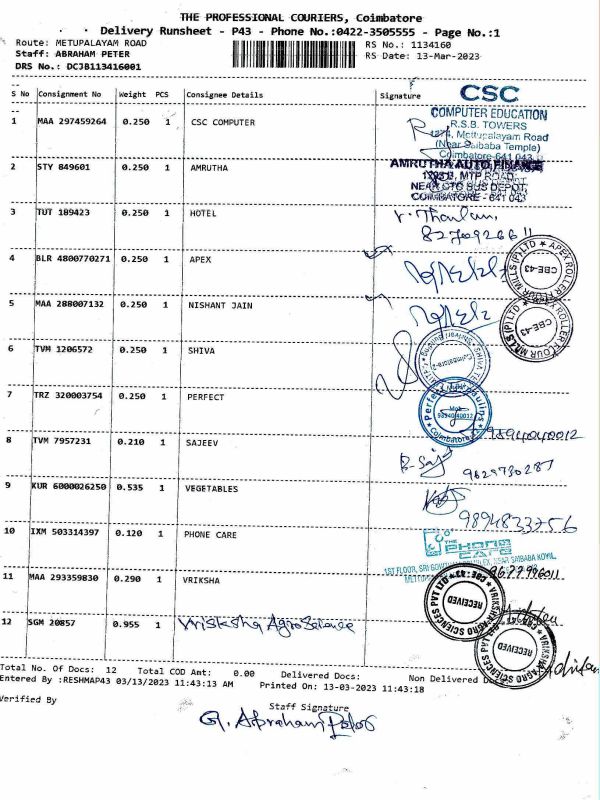 THE PROFESSIONAL COURIERS, Coimbatore
Delivery Runsheet - P43 - Phone No.:0422-3505555 - Page No.:1
Route: METUPALAYAM ROAD
RS No.: 1134160
Staff: ABRAHAM PETER
RS Date: 13-Mar-2023
DRS No.: DCJB113416001
S No Consignment No Weight PCS Consignee Details Signature
CSC
COMPUTER EDUCATION
R.S.B. TOWERS
Mettupalayam Road
(Near Saibaba Temple)
Coimbatore-641 043
1 MAA 297459264 0.250 1 CSC COMPUTER
AMRUTHA AUTO FINANCE
MTP ROAD
NEAR CTO BUS DEPOT,
COIMBATORE - 641 043
2 STY 849601 0.250 1 AMRUTHA
3 TUT 189423 0.250 1 HOTEL
4 BLR 4800770271 0.250 1 APEX
APEX ROLLER FLOUR MILLS (P) LTD
CBE-43
5 MAA 288007132 0.250 1 NISHANT JAIN
APEX ROLLER FLOUR MILLS (P) LTD
CBE-43
6 TVM 1206572 0.250 1 SHIVA
7 TRZ 320003754 0.250 1 PERFECT
Perfect
Coimbatore
98940 40012
9894040012
8 TVM 7957231 0.210 1 SAJEEV
9629730287
9 KUR 6000026250 0.535 1 VEGETABLES
9894833756
10 IXM 503314397 0.120 1 PHONE CARE
THE PHONE CARE
1ST FLOOR, NEAR SAIBABA KOVIL,
11 MAA 293359830 0.290 1 VRIKSHA
VRIKSHA AGRO SCIENCES PVT LTD
CBE-43
RECEIVED
12 SGM 20857 0.955 1 Vriksha Agro Science
VRIKSHA AGRO SCIENCES PVT LTD
RECEIVED
Total No. Of Docs: 12 Total COD Amt: 0.00 Delivered Docs: Non Delivered
Entered By :RESHMAP43 03/13/2023 11:43:13 AM Printed On: 13-03-2023 11:43:18
Verified By
Staff Signature